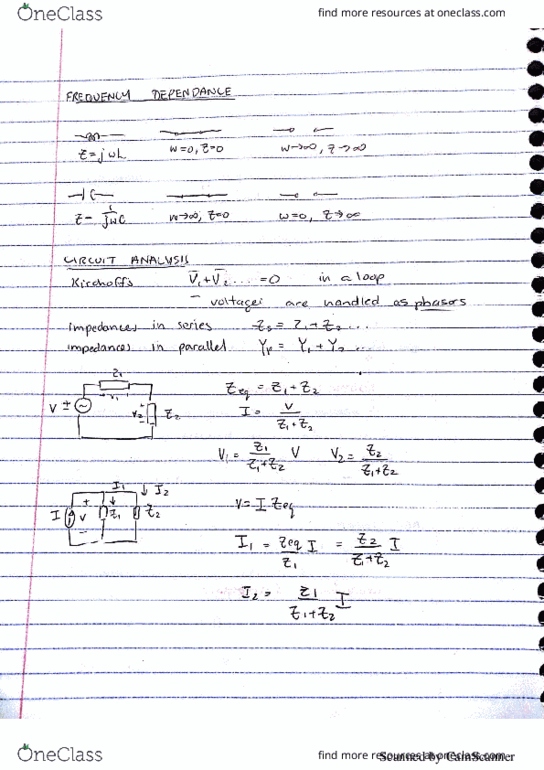 OneClass
find more resources at oneclass.com
FREQUENCY DEPENDANCE
Z=jωL  ω=0, Z=0  ω→∞, Z→∞
Z= 1/jωC  ω→∞, Z=0  ω=0, Z→∞
CIRCUIT ANALYSIS
Kirchoffs V̄₁+V̄₂ .... =0 in a loop
– voltages are handled as phasors
impedances in series Zs = Z₁+Z₂ ...
impedances in parallel Yp = Y₁+Y₂ ...
Z₁
V ± V₁ V₂ Z₂
Zeq = Z₁+Z₂
I = V/Z₁+Z₂
V₁ = Z₁/Z₁+Z₂ V  V₂ = Z₂/Z₁+Z₂
I₁ ↓ I₂
I + V – Z₁ Z₂
V= I Zeq
I₁ = Zeq/Z₁ I = Z₂/Z₁+Z₂ I
I₂ = Z₁/Z₁+Z₂ I
OneClass
find more resources at oneclass.com
Scanned by CamScanner